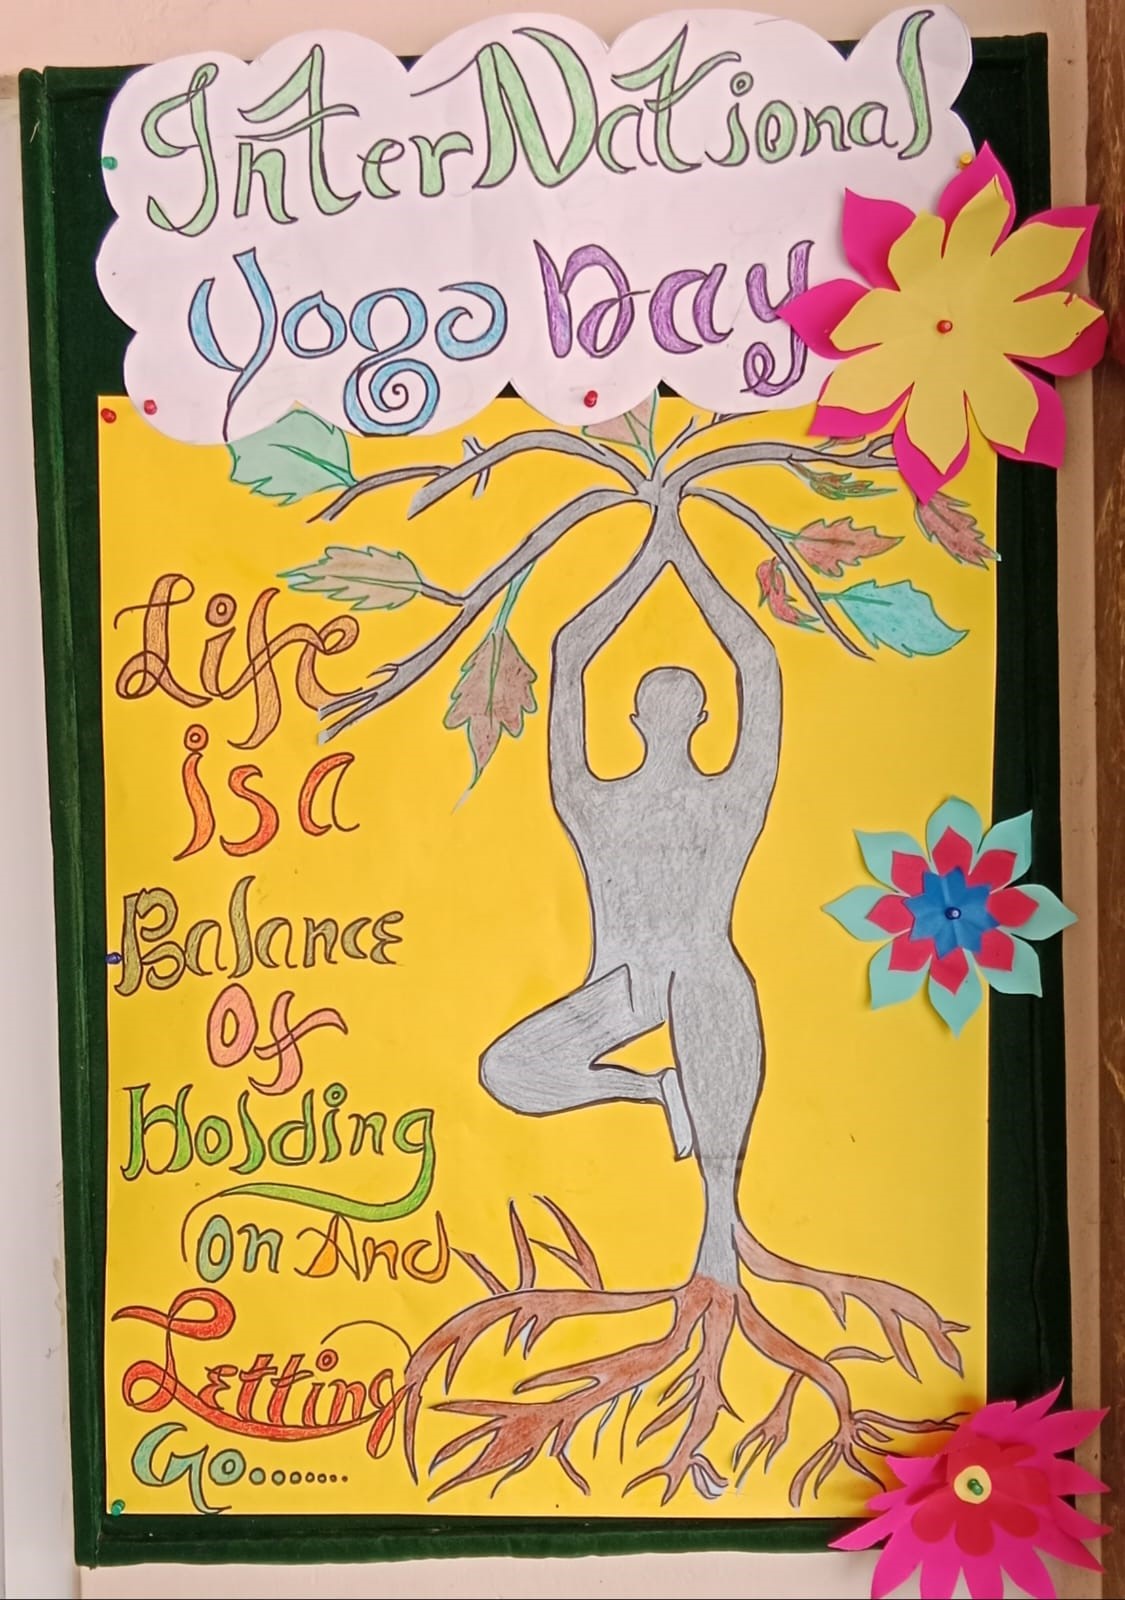 InterNational
Yoga Day
Life
is a
Balance
Of
Holding
on And
Letting
Go.......